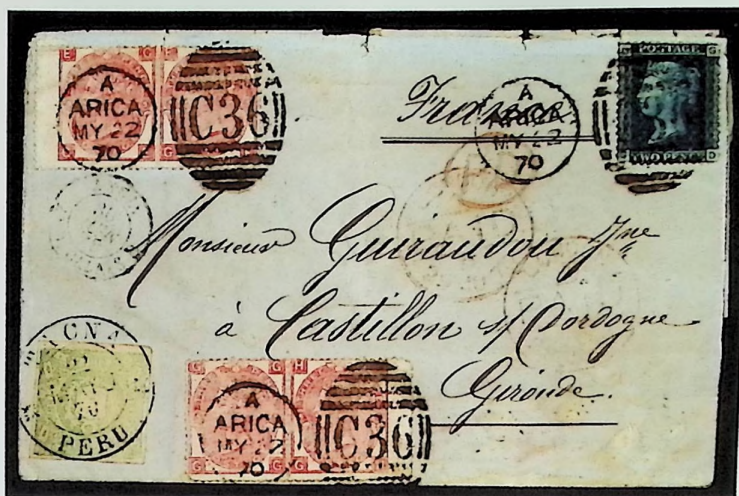 E G
G
A
ARICA
MY 22
70
C36
France
A
ARICA
MY 22
70
POSTAGE
TWO PENCE
PD
Monsieur Guiraudou Jne
à Castillon s/ Dordogne
Gironde.
TACNA
22
MAY
70
PERU
G H
G G
A
ARICA
MY 22
70
C36